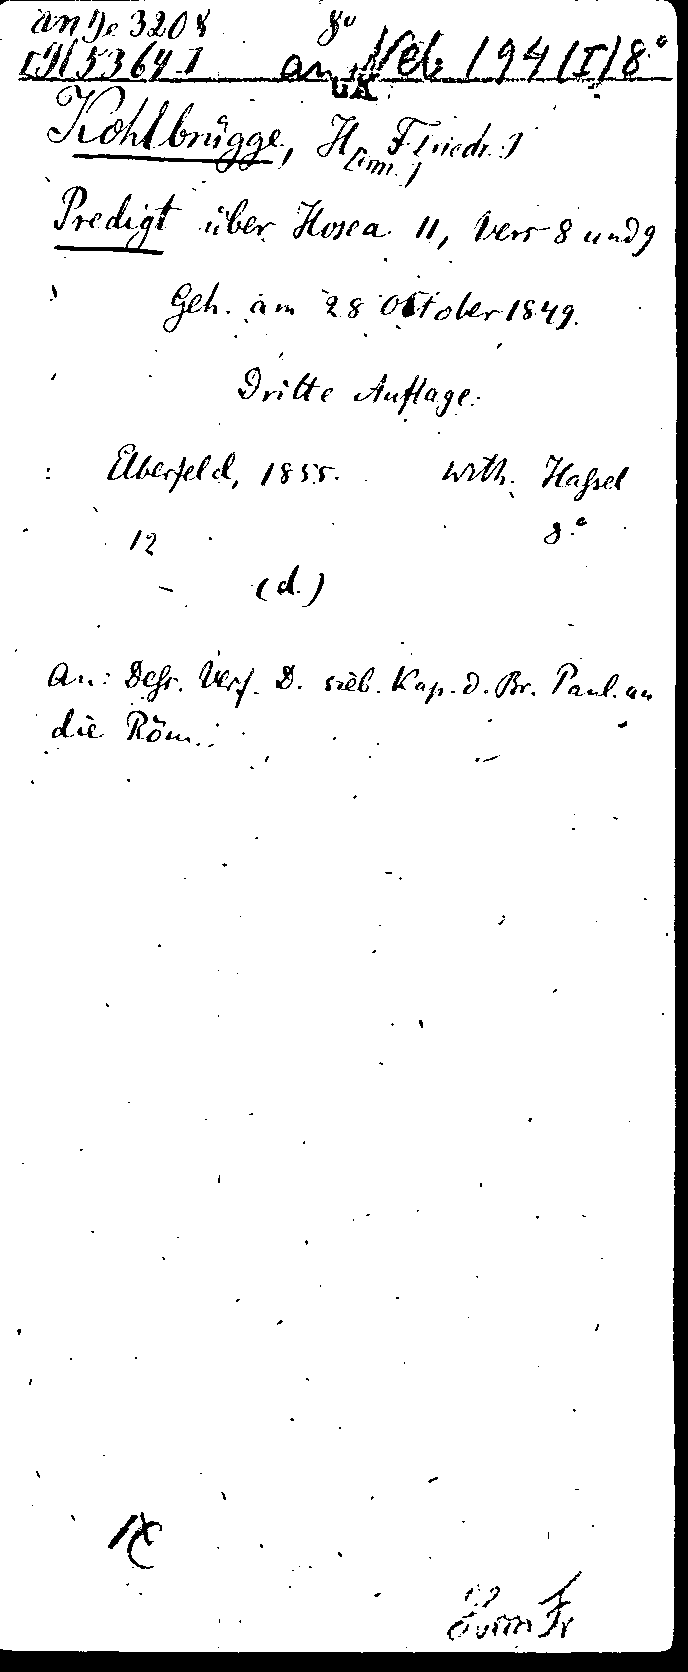 an De 3208 8°
[N 5364] an Neb 194 (I) 8°
Kohlbrügge, H[erm.] F[riedr.]
Predigt über Hosea 11, Vers 8 und 9
Geh. am 28 Oktober 1849.
Dritte Auflage.
Elberfeld, 1855. Wilh. Hassel
12 8°
(d.)
An: Dess. Verf. D. sieb. Kap. d. Br. Paul. an
die Röm.
Herm Fr